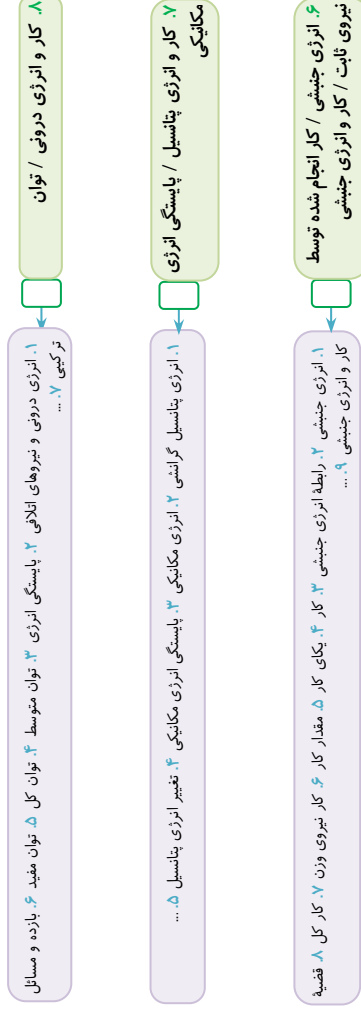 ۶. انرژی جنبشی / کار انجام شده توسط
نیروی ثابت / کار و انرژی جنبشی
۱. انرژی جنبشی ۲. رابطهٔ انرژی جنبشی ۳. کار ۴. یکای کار ۵. مقدار کار ۶. کار نیروی وزن ۷. کار کل ۸. قضیهٔ
کار و انرژی جنبشی ۹. ...
۷. کار و انرژی پتانسیل / پایستگی انرژی
مکانیکی
۱. انرژی پتانسیل گرانشی ۲. انرژی مکانیکی ۳. پایستگی انرژی مکانیکی ۴. تغییر انرژی پتانسیل ۵. ...
۸. کار و انرژی درونی / توان
۱. انرژی درونی و نیروهای اتلافی ۲. پایستگی انرژی ۳. توان متوسط ۴. توان کل ۵. توان مفید ۶. بازده و مسائل
ترکیبی ۷. ...